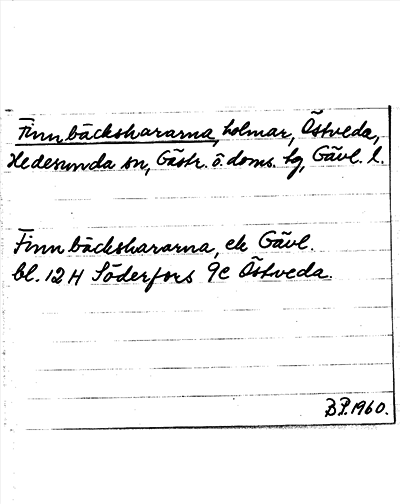 Finnbäckshararna, holmar, Östveda,
Hedesunda sn, Gästr. ö. doms. tg, Gävl. l.
Finnbäckshararna, ek Gävl.
bl. 12 H Söderfors 9e Östveda.
B.P. 1960.